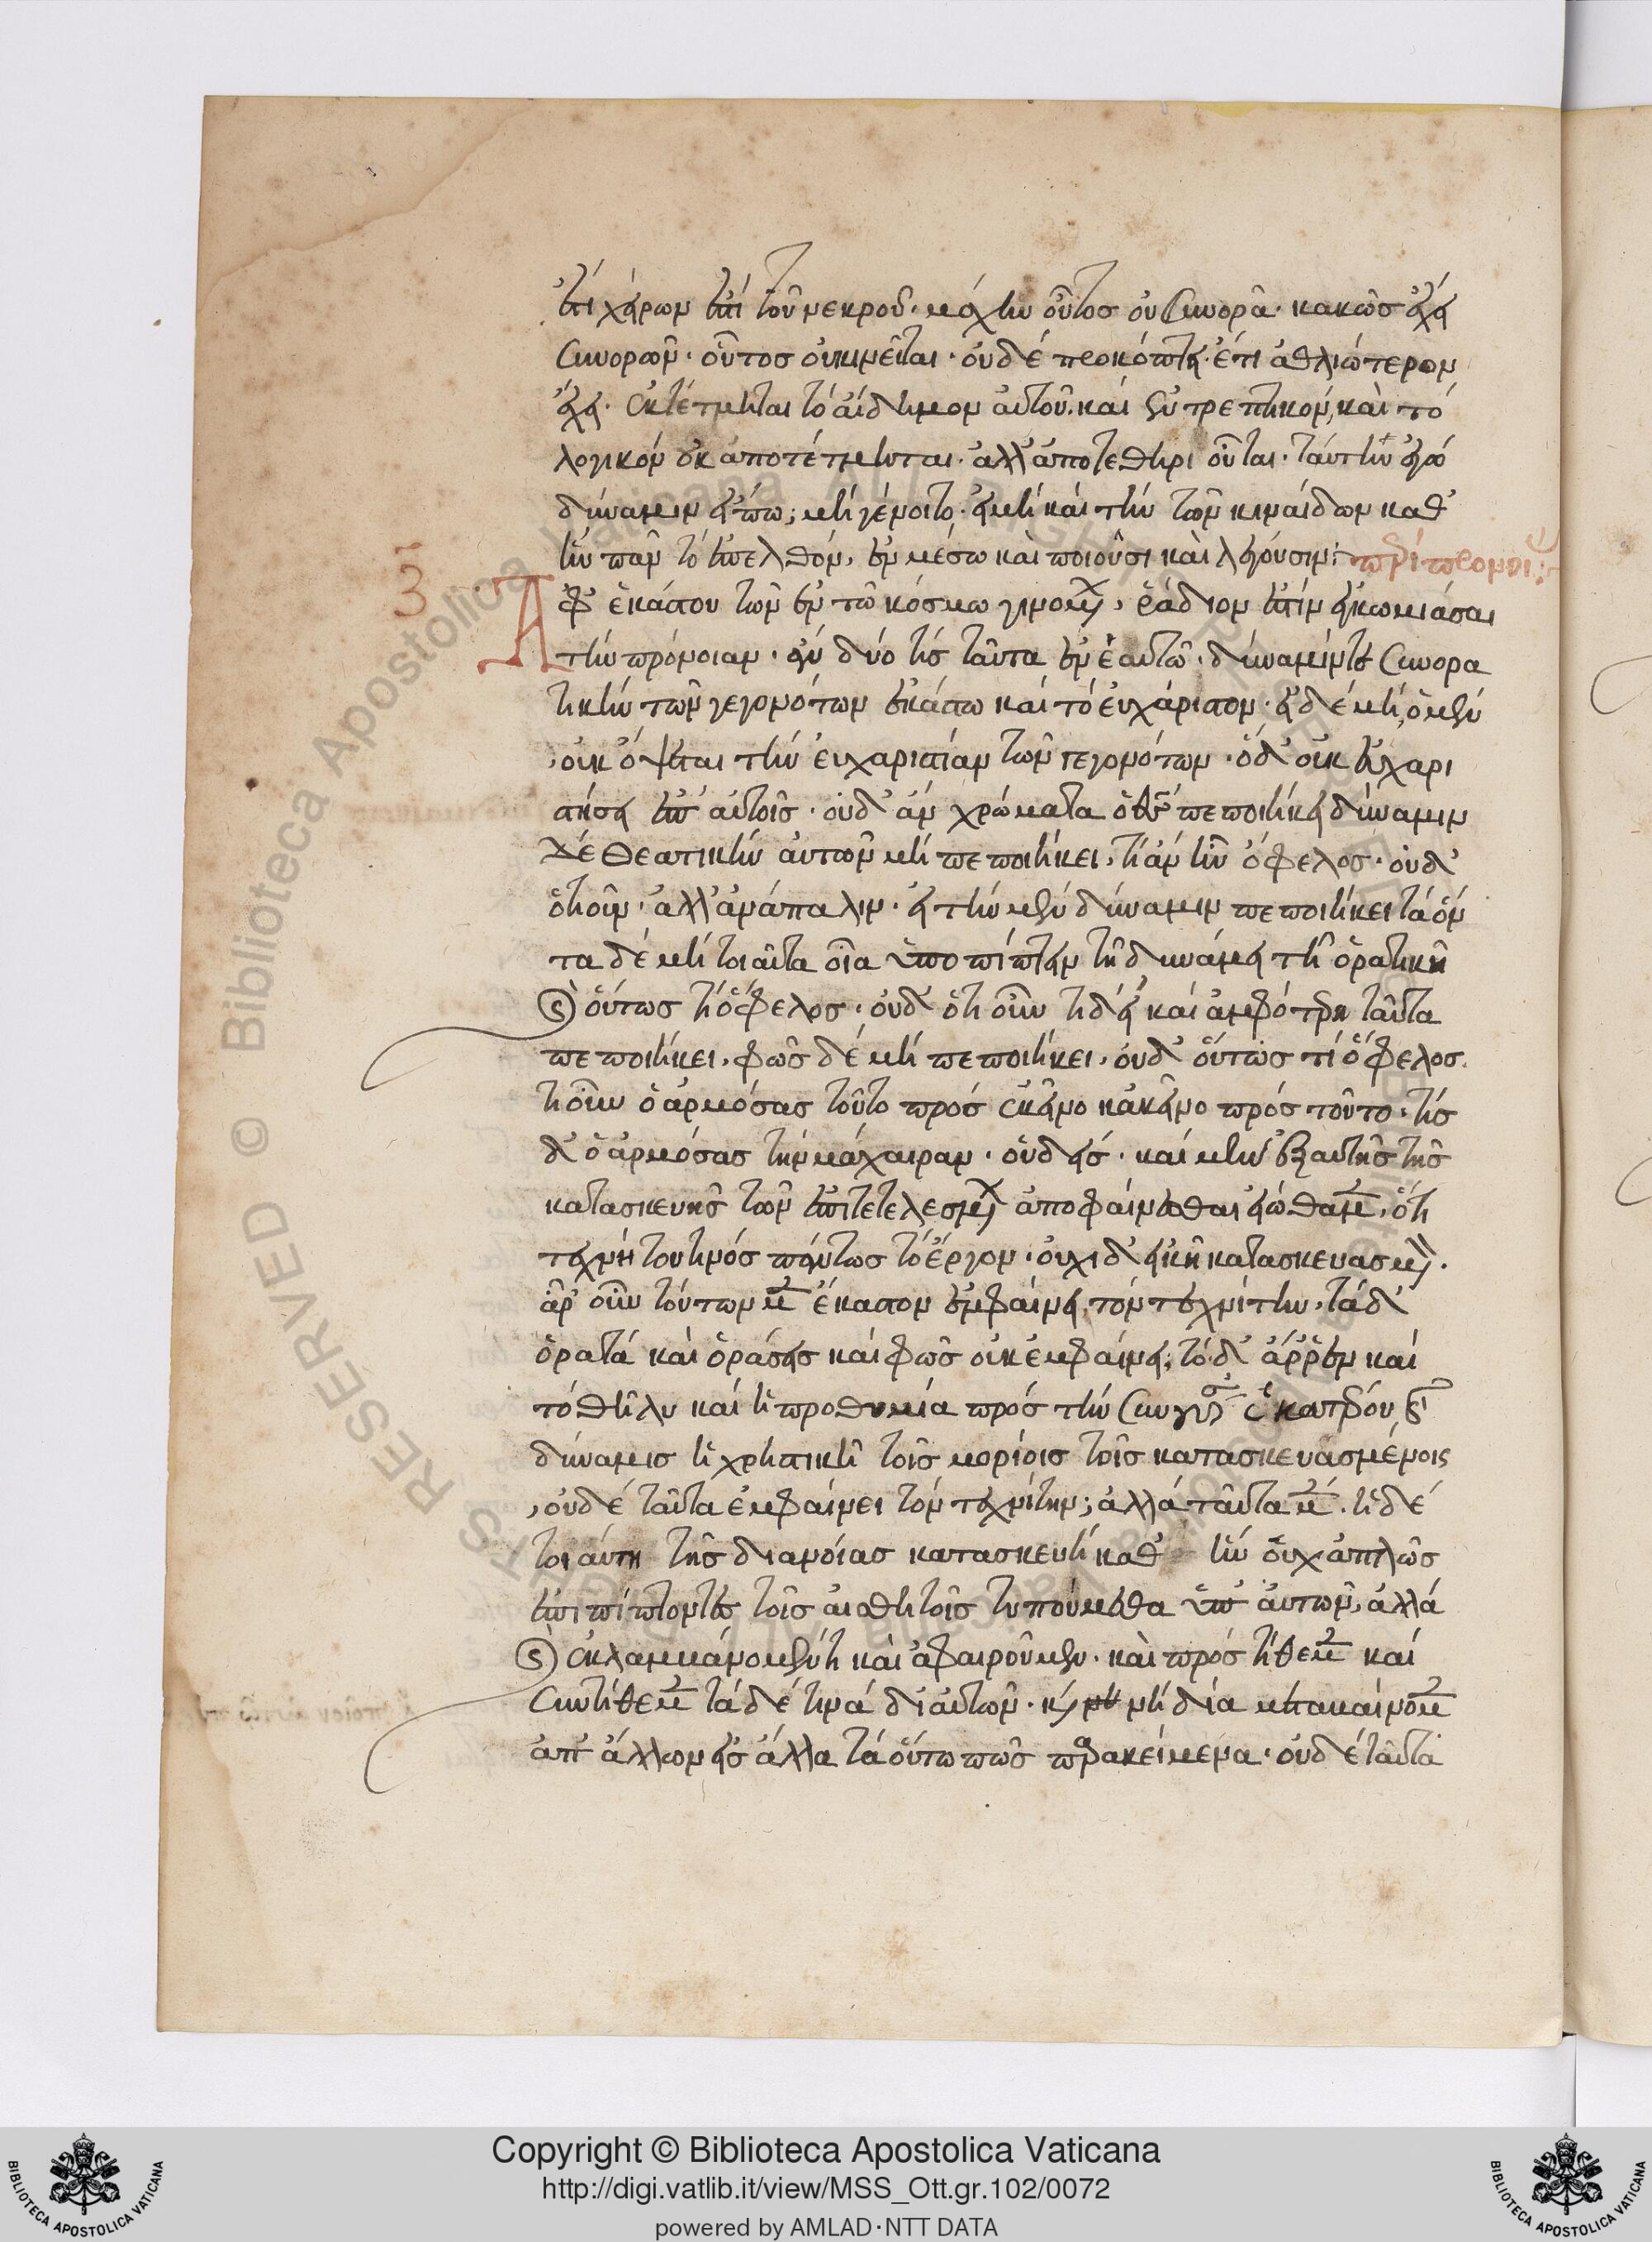 ἔτι χεῖρον ἐστὶ τοῦ νεκροῦ. μάχην οὗτος οὐ συνορᾷ. κακῶς ἔχει
συνορῶν. οὗτος οὐ κινεῖται. οὐδὲ προκόπτει. ἔτι ἀθλιώτερον
ἔχει. ἐκτέτμηται τὸ αἰδῆμον αὐτοῦ. καὶ ἐντρεπτικόν, καὶ τὸ
λογικὸν οὐκ ἀποτέτμηται. ἀλλ' ἀποτεθηρίουται. ταύτην ἐγὼ
δύναμιν εἴπω; μὴ γένοιτο. εἰ μὴ καὶ τὴν τῶν κιναίδων καθ'
ἣν πᾶν τὸ ἐπελθὸν, ἐν μέσω καὶ ποιοῦσι καὶ λέγουσιν: περὶ προνοί:
ς
Ἀφ' ἑκάστου τῶν ἐν τῶ κόσμω γινομ, ῥάδιον ἐστὶν ἐγκωμιάσαι
τὴν πρόνοιαν. ἂν δύο τίς ταῦτα ἐν ἑαυτῶ. δύναμίν τε συνορα
τικὴν τῶν γεγονότων ἑκάστω καὶ τὸ εὐχάριστον. εἰ δὲ μή, ὁ μὲν
οὐκ ὄψεται τὴν εὐχαριστίαν τῶν γεγονότων. ὁ δ' οὐκ εὐχαρι
στήσει ἐπ' αὐτοῖς. οὐδ' ἂν χρώματα ὁ θς πεποιήκει δύναμιν
δὲ θεατικὴν αὐτῶν μὴ πεποιήκει, τί ἂν ἦν ὄφελος. οὐδ'
ὁτιοῦν. ἀλλ' ἀνάπαλιν. εἰ τὴν μὲν δύναμιν πεποιήκει τὰ ὄν
τα δὲ μὴ τοιαῦτα οἷα ὑποπίπτειν τῆ δυνάμει τῆ ὁρατικῆ
οὕτως τί ὄφελος. οὐδ' ὁτιοῦν τί δ' εἰ καὶ ἀμφότερα ταῦτα
πεποιήκει, φῶς δὲ μὴ πεποιήκει, οὐδ' οὕτως τί ὄφελος.
τί οὖν ὁ ἁρμόσας τοῦτο πρὸς ἐκεῖνο κἀκεῖνο πρὸς τοῦτο. τίς
δ' ὁ ἁρμόσας τὴν μάχαιραν. οὐδείς. καὶ μὴν ἐξ αὐτῆς τῆς
κατασκευῆς τῶν ἐπιτετελεσμ ἀποφαίνεσθαι εἰώθαμ, ὅτι
τεχνίτου τινὸς πάντως τὸ ἔργον. οὐχὶ δ' εἰκῆ κατασκευασμ.
ἆρ' οὖν τούτων μ ἕκαστον ἐμφαίνει τὸν τεχνίτην, τὰ δ'
ὁρατὰ καὶ ὁράσεις καὶ φῶς οὐκ ἐμφαίνει; τὸ δ' ἄρρεν καὶ
τὸ θῆλυ καὶ ἡ προθυμία πρὸς τὴν συνουσ ἑκατέρου κ
δύναμις ἡ χρηστικὴ τοῖς μορίοις τοῖς κατασκευασμένοις
, οὐδὲ ταῦτα ἐμφαίνει τὸν τεχνίτην; ἀλλὰ ταῦτα μ. ἡ δὲ
τοιαύτη τῆς διανοίας κατασκευὴ καθ' ἣν οὐχ ἁπλῶς
ἐπιπίπτοντες τοῖς αἰσθητοῖς τυπούμεθα ὑπ' αὐτῶν, ἀλλὰ
ἐκλαμβάνομέν τι καὶ ἀφαιροῦμεν. καὶ προστίθεμ καὶ
συντίθεμ τὰ δέ τινα δι' αὐτῶν. κ νὴ δία μεταβαίνομ
ἀπ' ἄλλων εἰς ἄλλα τὰ οὕτω πως παρακείμενα. οὐδὲ ταῦτα
Copyright © Biblioteca Apostolica Vaticana
http://digi.vatlib.it/view/MSS_Ott.gr.102/0072
powered by AMLAD·NTT DATA